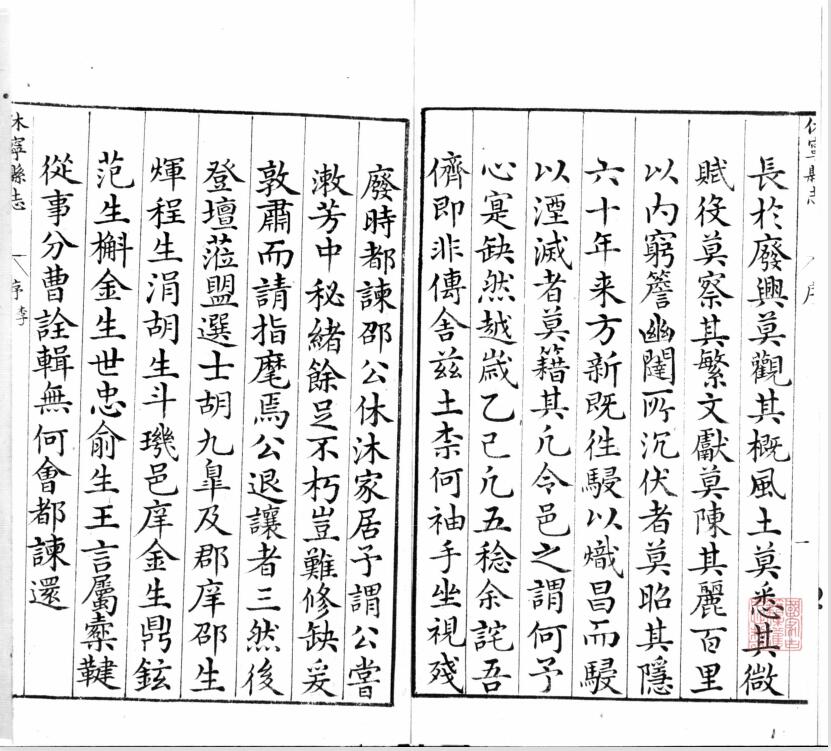 休寧縣志
序
一
長於廢興莫觀其概風土莫悉其微
賦役莫察其繁文獻莫陳其麗百里
以內窮簷幽闥所沉伏者莫昭其隱
六十年来方新既徃駸以熾昌而駸
以湮滅者莫籍其凢令邑之謂何予
心寔缺然越歲乙巳凢五稔余詫吾
儕即非傳舍茲土柰何袖手坐視殘
廢時都諫邵公休沐家居予謂公嘗
漱芳中秘緒餘足不朽豈難修缺爰
敦肅而請指麾焉公退讓者三然後
登壇蒞盟選士胡九臯及郡庠邵生
煇程生涓胡生斗璣邑庠金生鼎鉉
范生槲金生世忠俞生王言屬櫜鞬
從事分曹詮輯無何會都諫還
休寧縣志
序
李